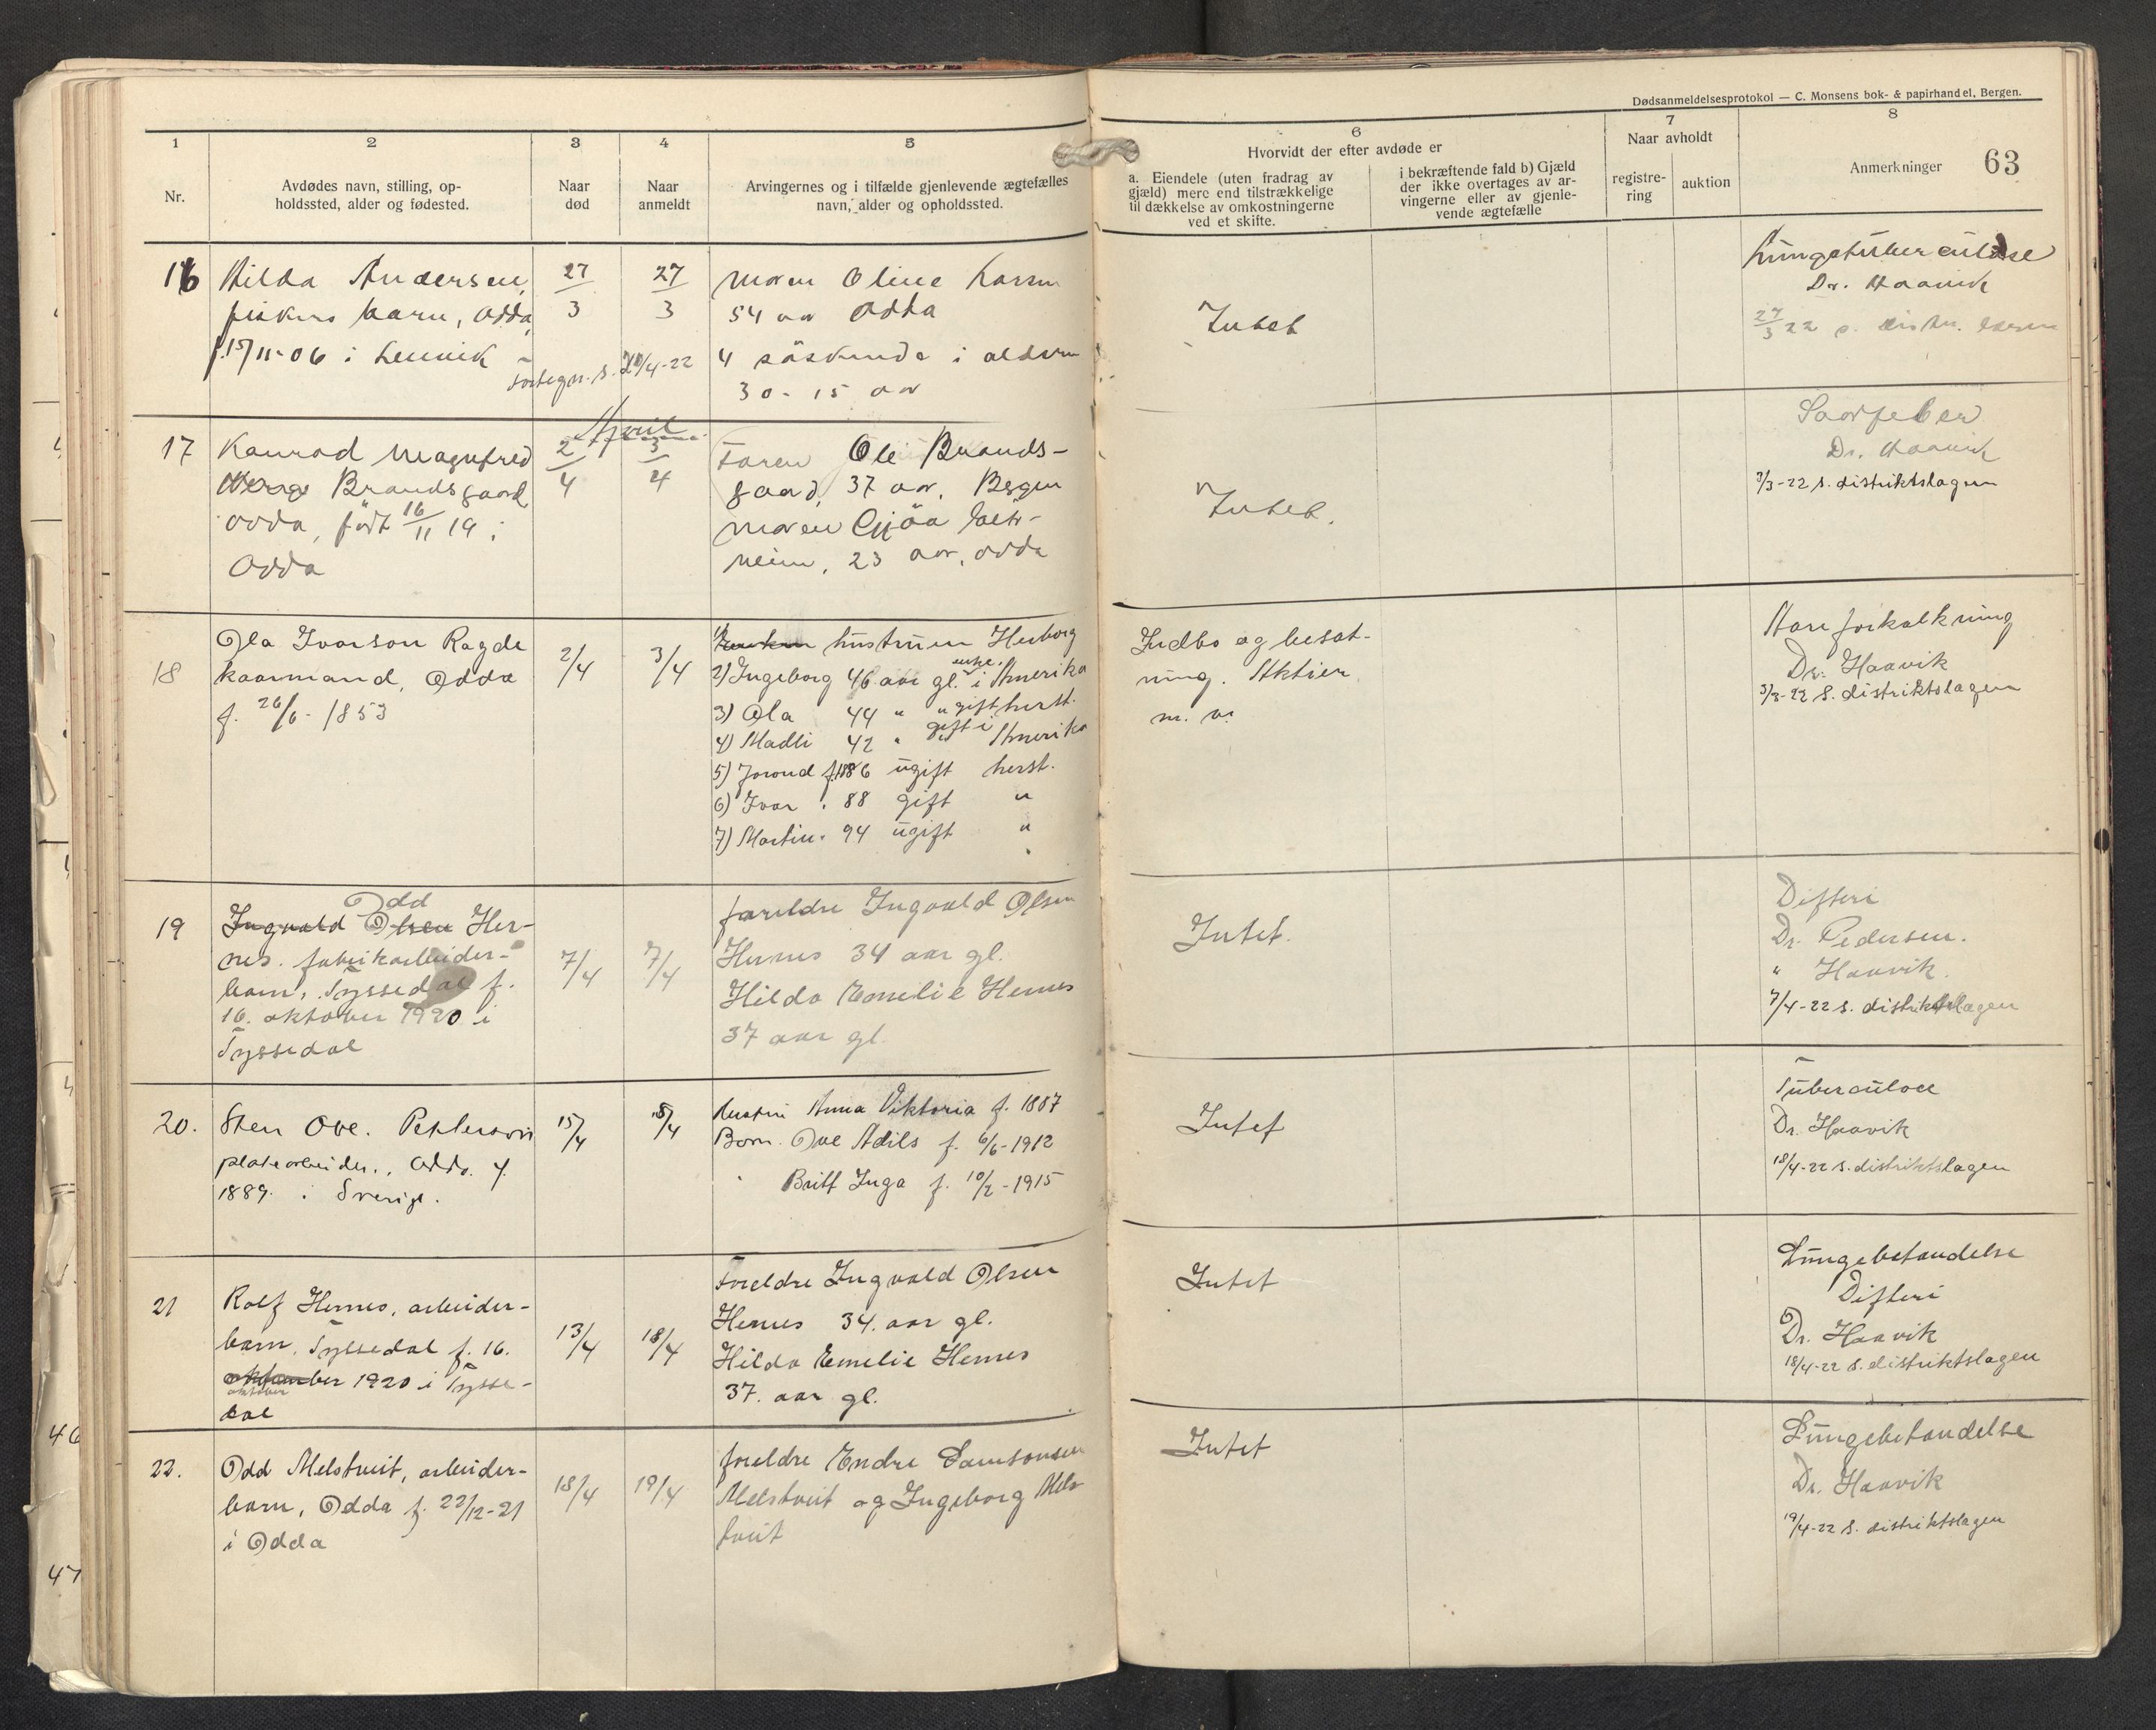 Dødsanmeldelsesprotokol — C. Monsens bok- & papirhandel, Bergen.
63
1
Nr.
2
Avdødes navn, stilling, op-
holdssted, alder og fødested.
3
Naar
død
4
Naar
anmeldt
5
Arvingernes og i tilfælde gjenlevende ægtefælles
navn, alder og opholdssted.
6
Hvorvidt der efter avdøde er
a. Eiendele (uten fradrag av
gjæld) mere end tilstrækkelige
til dækkelse av omkostningerne
ved et skifte.
i bekræftende fald b) Gjæld
der ikke overtages av ar-
vingerne eller av gjenle-
vende ægtefælle
7
Naar avholdt
registre-
ring
auktion
8
Anmerkninger
16
Hilda Andersen,
fiskers barn, Odda,
f. 15/11-06 i
27/3
27/3
Moren Oline
54 aar Odda
4 søskende i alderen
30 - 15 aar
Intet
Lungetuberculose
Dr. Haavik
27/3 22 s.
April
17
Konrad Magnfred
Brandsgaard
Odda, født 16/11 19 i
Odda
2/4
3/4
Faren Ole Brands-
gaard, 37 aar, Bergen
Moren
23 aar, Odda
Intet.
Dr. Haavik
3/3-22 s. distriktslægen
18
Ola Ivarson Ragde
kaarmand, Odda
f. 26/6- 1853
2/4
3/4
1) hustruen Herborg
2) Ingeborg 46 aar gl. enke i Amerika
3) Ola 44 " ugift herst.
4) Madli 42 " gift i Amerika
5) Jorond f. 1886 ugift herst.
6) Ivar " 88 gift "
7) Martin " 94 ugift "
Indbo og besæt-
ning. Aktier
m. v.
Aareforkalkning
Dr. Haavik
3/3-22 s. distriktslægen
19
Odd
Ingvald Olsen Her-
nes. fabrikarbeider-
barn, Tyssedal f.
16. oktober 1920 i
Tyssedal
7/4
7/4
foreldre Ingvald Olsen
Hernes 34 aar gl.
Hilda Emelie Hernes
37 aar gl.
Intet.
Difteri
Dr. Pedersen.
" Haavik.
7/4-22 s. distriktslægen
20.
Sten Ove. Petterson
platearbeider., Odda. f.
1889. i Sverige.
15/4
18/4
Hustru Anna Viktoria f. 1887
Born. Ove Adils f. 6/6-1912
" Britt Inga f. 10/2-1915
Intet
Tuberculose
Dr. Haavik
18/4-22 s. distriktslægen
21
Rolf Hernes, arbeider-
barn, Tyssedal f. 16.
oktober 1920 i Tysse-
dal
13/4
18/4
Foreldre Ingvald Olsen
Hernes 34. aar gl.
Hilda Emelie Hernes
37. aar gl.
Intet
Lungebetændelse
Difteri
Dr. Haavik
18/4-22 s. distriktslægen
22.
Odd Melstveit, arbeider-
barn, Odda f. 22/12-21
i Odda
18/4
19/4
foreldre Endre Samsonsen
Melstveit og Ingeborg Mels-
tveit
Intet
Lungebetændelse
Dr. Haavik
19/4-22 s. distriktslægen